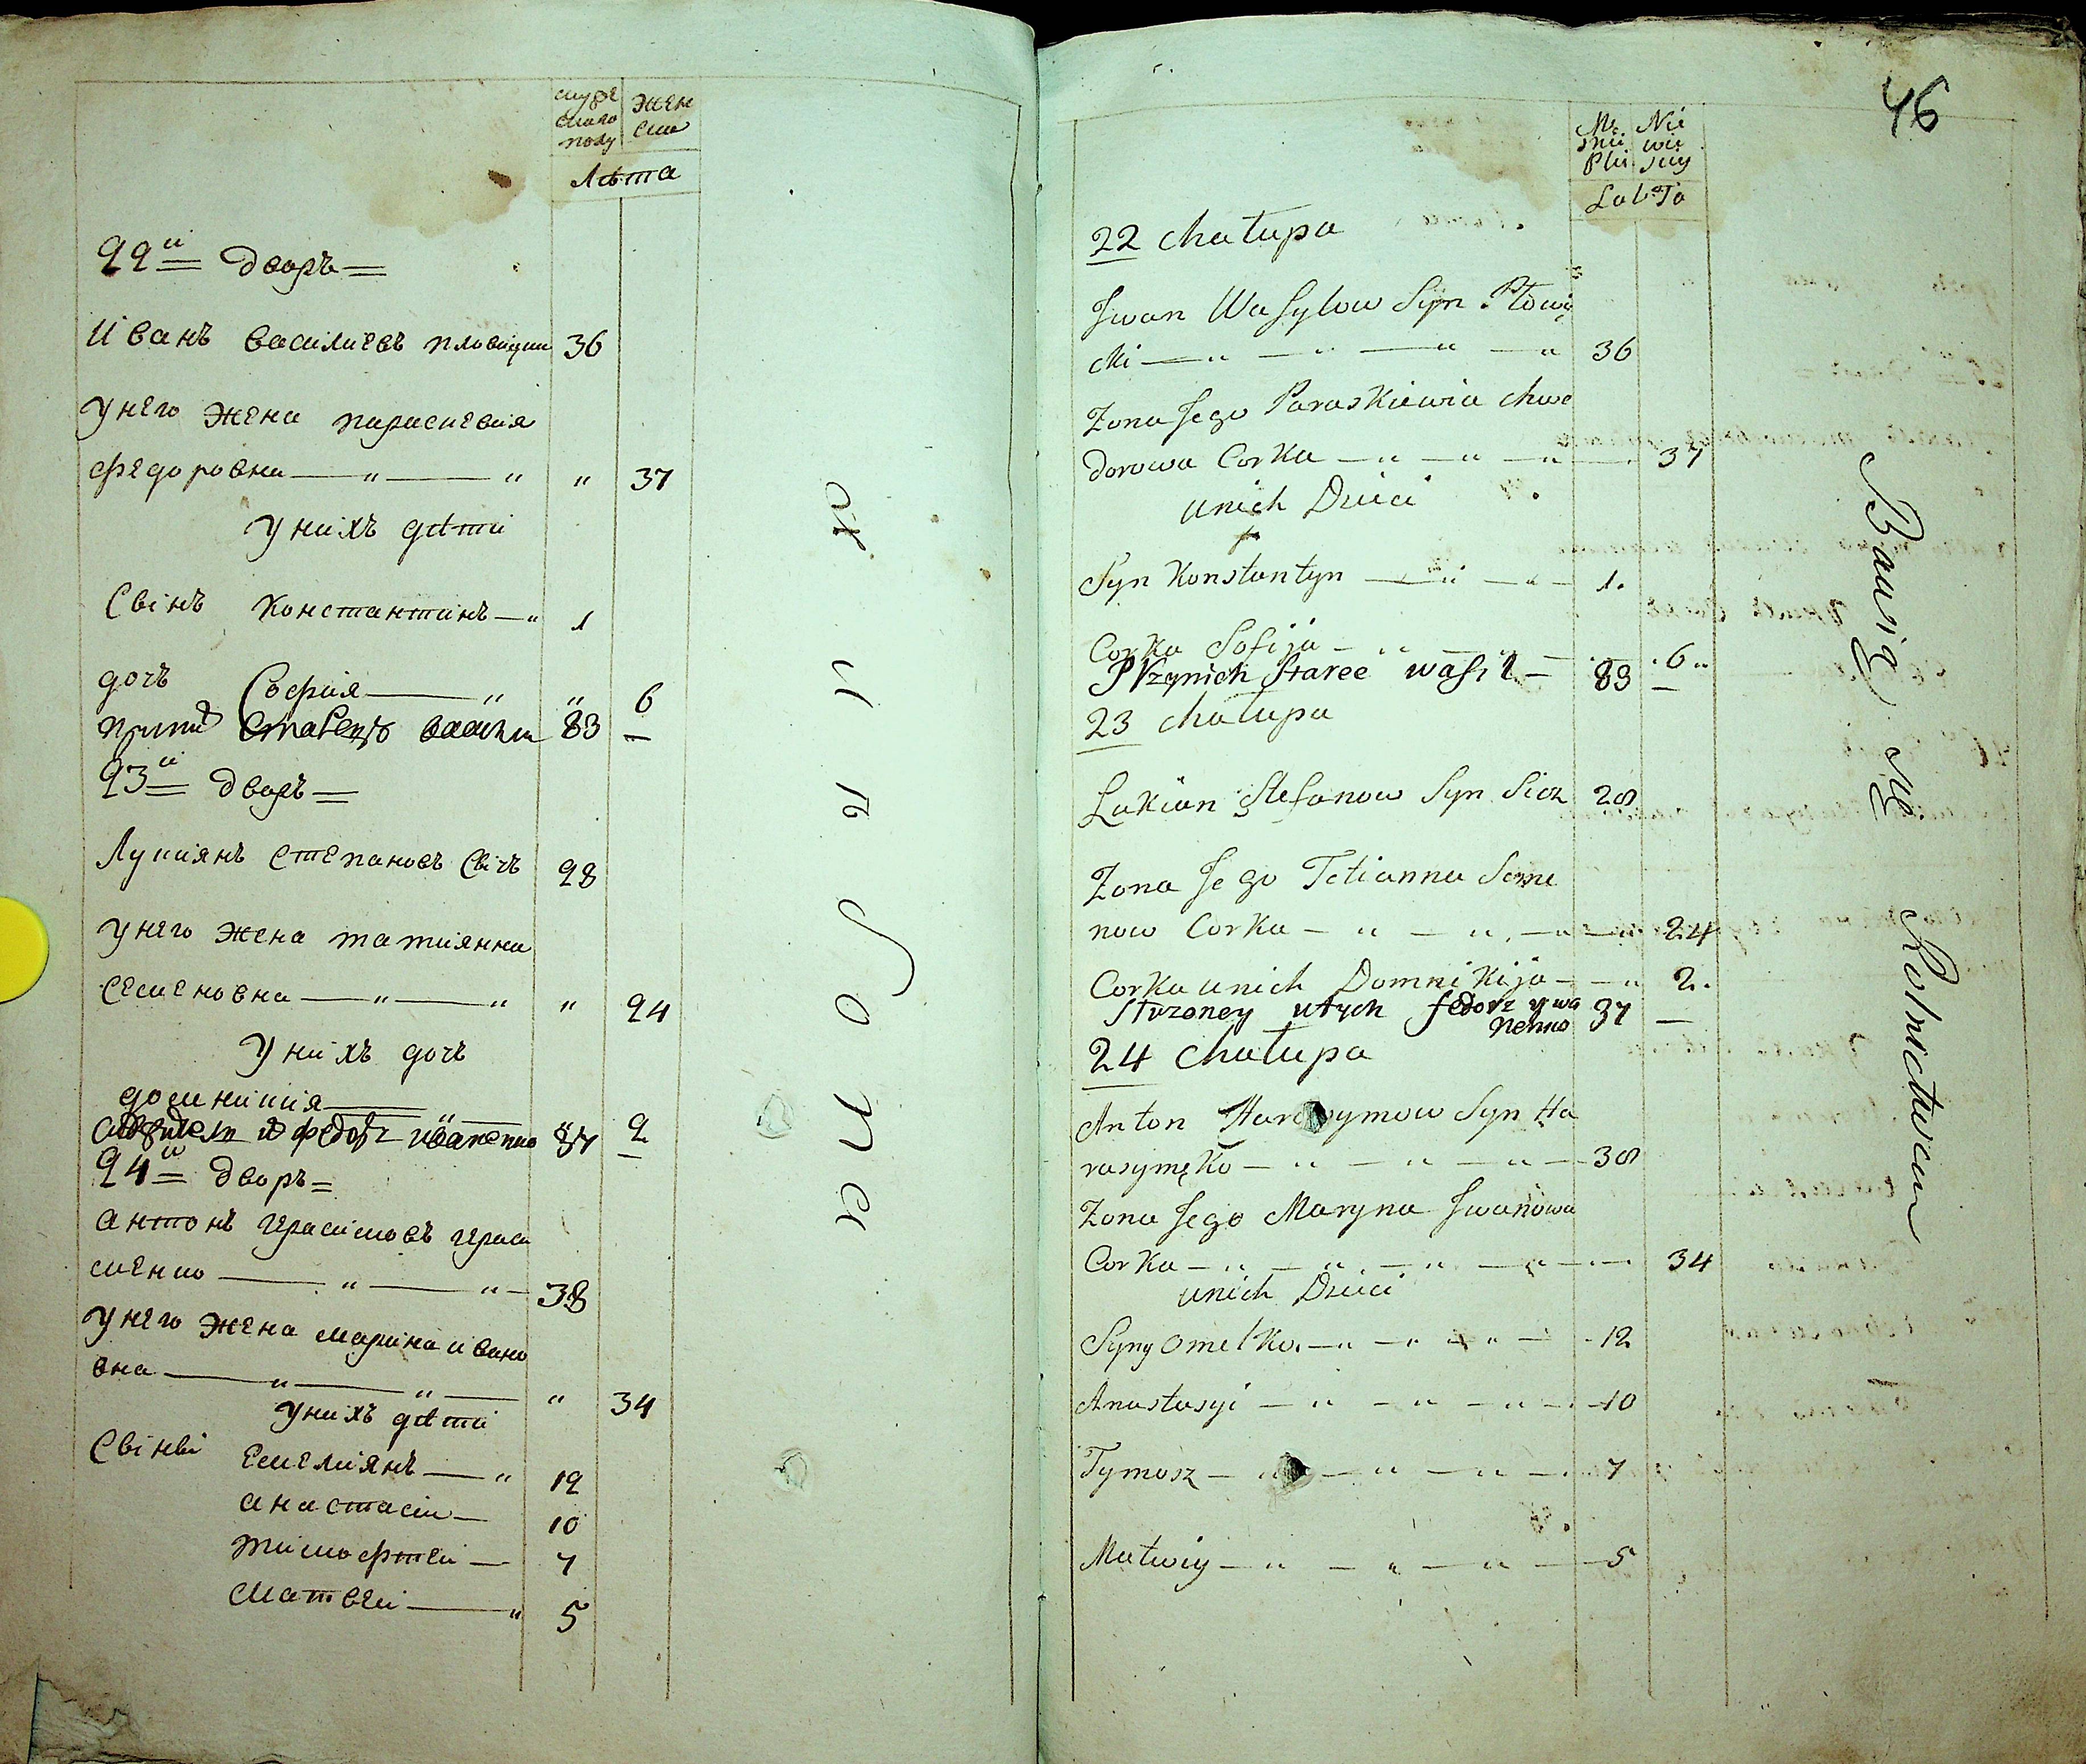 муже
ского
полу
жен
ска
Лѣта
22й дворъ
Иванъ Василиевъ Пловицки 36
у него жена Параскевия
Федоровна " " " 37
у нихъ дѣти
Сынъ Константинъ " 1
дочъ София " " 6
при них старецъ Васил 83 —
23й дворъ
Лукиянъ Степановъ Сѣчъ 28
у него жена татиянна
Семеновна " " " 24
у нихъ дочъ
доминикия " " 2
федоръ иваненко 37 —
24й дворъ
антонъ герасимовъ гераси
менко " " 38
у него жена марина ивано
вна " " " 34
у нихъ дѣти
Сынви Емелиянъ " 12
анастасии 10
тимофтеи 7
Матвеи " 5
46
Mę Nie
Lat Ta
22 chałupa
Jwan Wasylow Syn Płowię
cki " " " " 36
Żona Jego Paraskiewia chwe
dorowa Corka " " " 37
u nich Dzieci
Syn Konstantyn " " 1.
Corka Sofija " " 6"
Przynich Starec wasil 83 —
23 chałupa
Lukian Stefanow Syn Sicz 28
Żona Jego Tetianna Seme
now Corka " " " " 24
Corka unich Domnikija " 2.
Struzoney utych fedorz ywa
nenko 37 —
24 chałupa
Anton Harasymow Syn Ha
rasymęko " " " 38
Żona Jego Maryna Jwanowa
Corka " " " " 34
unich Dzieci
Syny Omelko " " " 12
Anastasyi " " " 10
Tymosz " " " 7
Matwiy " " " 5
Bawią się Rolnictwem